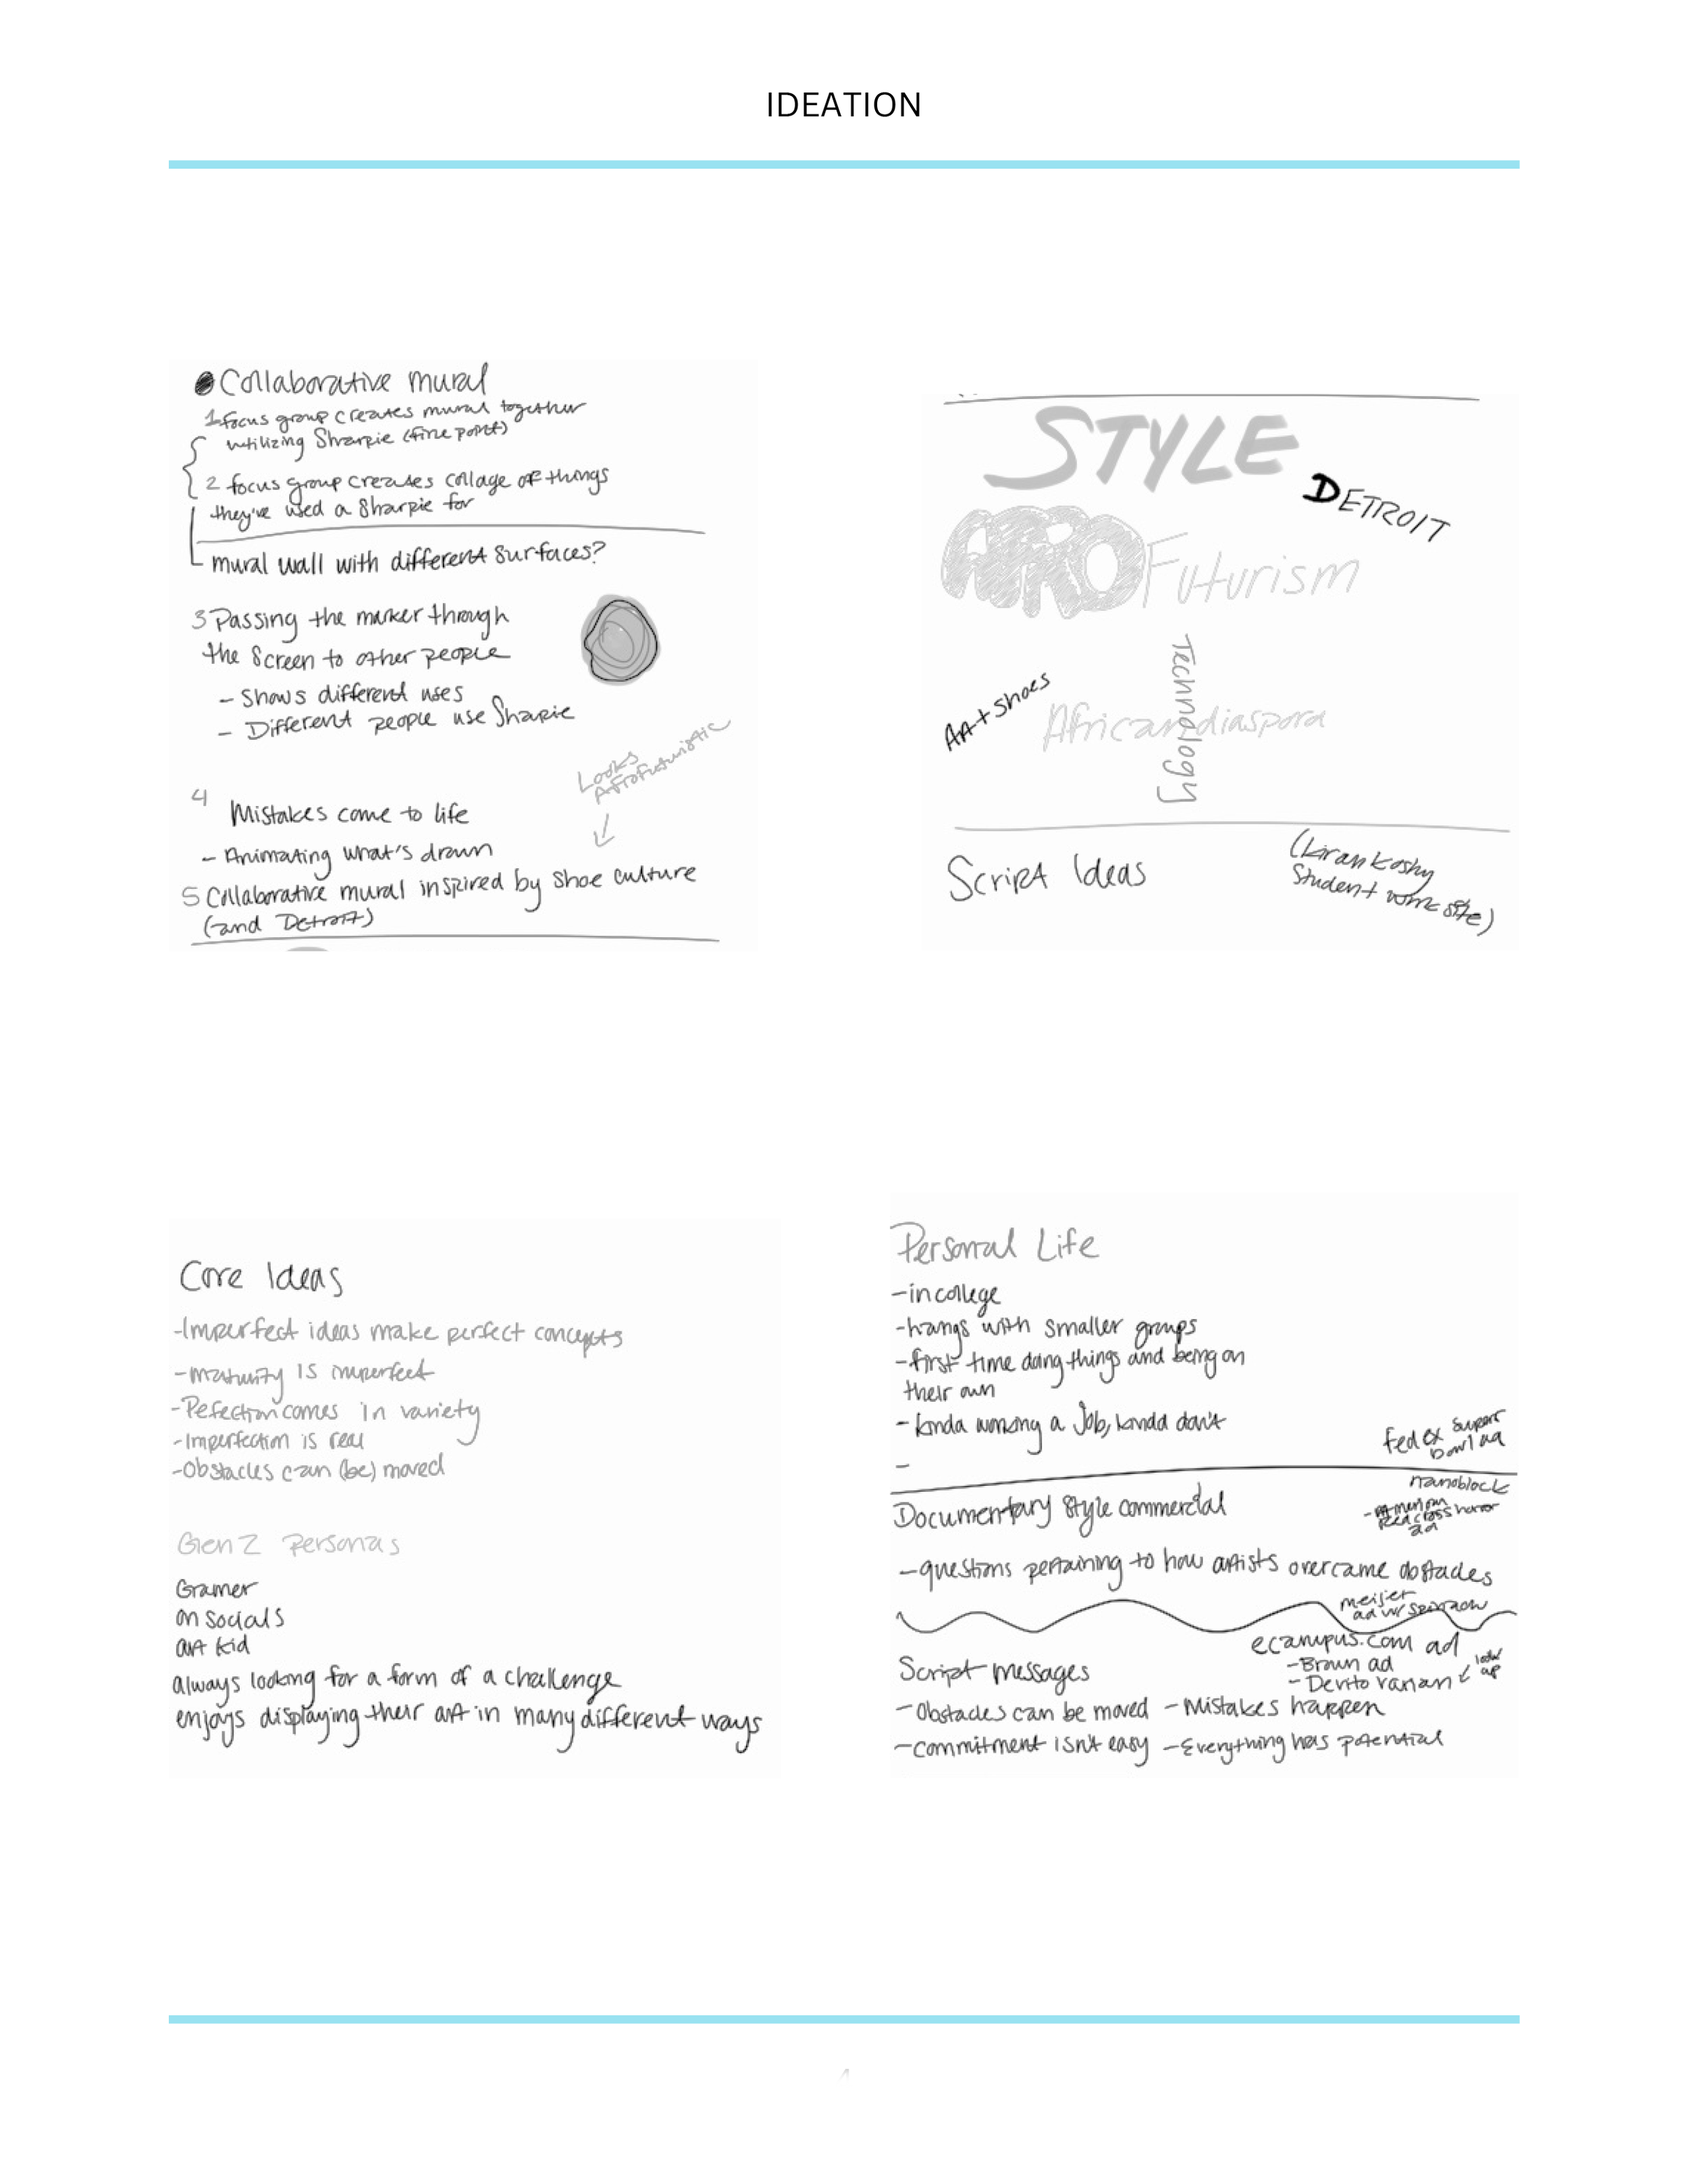 IDEATION
Collaborative mural
1 focus group creates mural together
utilizing Sharpie (fine point)
2 focus group creates collage of things
they've used a Sharpie for
mural wall with different surfaces?
3 Passing the marker through
the screen to other people
- Shows different uses
- Different people use Sharpie
Looks
Afrofuturistic
4
Mistakes come to life
- Animating what's drawn
5 Collaborative mural inspired by shoe culture
(and Detroit)
STYLE
DETROIT
AFRO Futurism
Technology
Art + shoes
African diaspora
Script Ideas
(Kiran Koshy
Student work site)
Core Ideas
-Imperfect ideas make perfect concepts
-maturity is imperfect
-Pefection comes in variety
-Imperfection is real
-Obstacles can (be) moved
Gen Z Personas
Gramer
on socials
art kid
always looking for a form of a challenge
enjoys displaying their art in many different ways
Personal Life
-in college
-hangs with smaller groups
-first time doing things and being on
their own
- kinda working a job, kinda don't
-
fed ex super
bowl ad
nanoblock
Documentary style commercial
- American
Red cross horror
ad
-questions pertaining to how artists overcame obstacles
meijer
ad w/
ecampus.com ad
-Brown ad
-Devito
look
up
Script messages
-Obstacles can be moved -Mistakes happen
-commitment isn't easy -Everything has potential